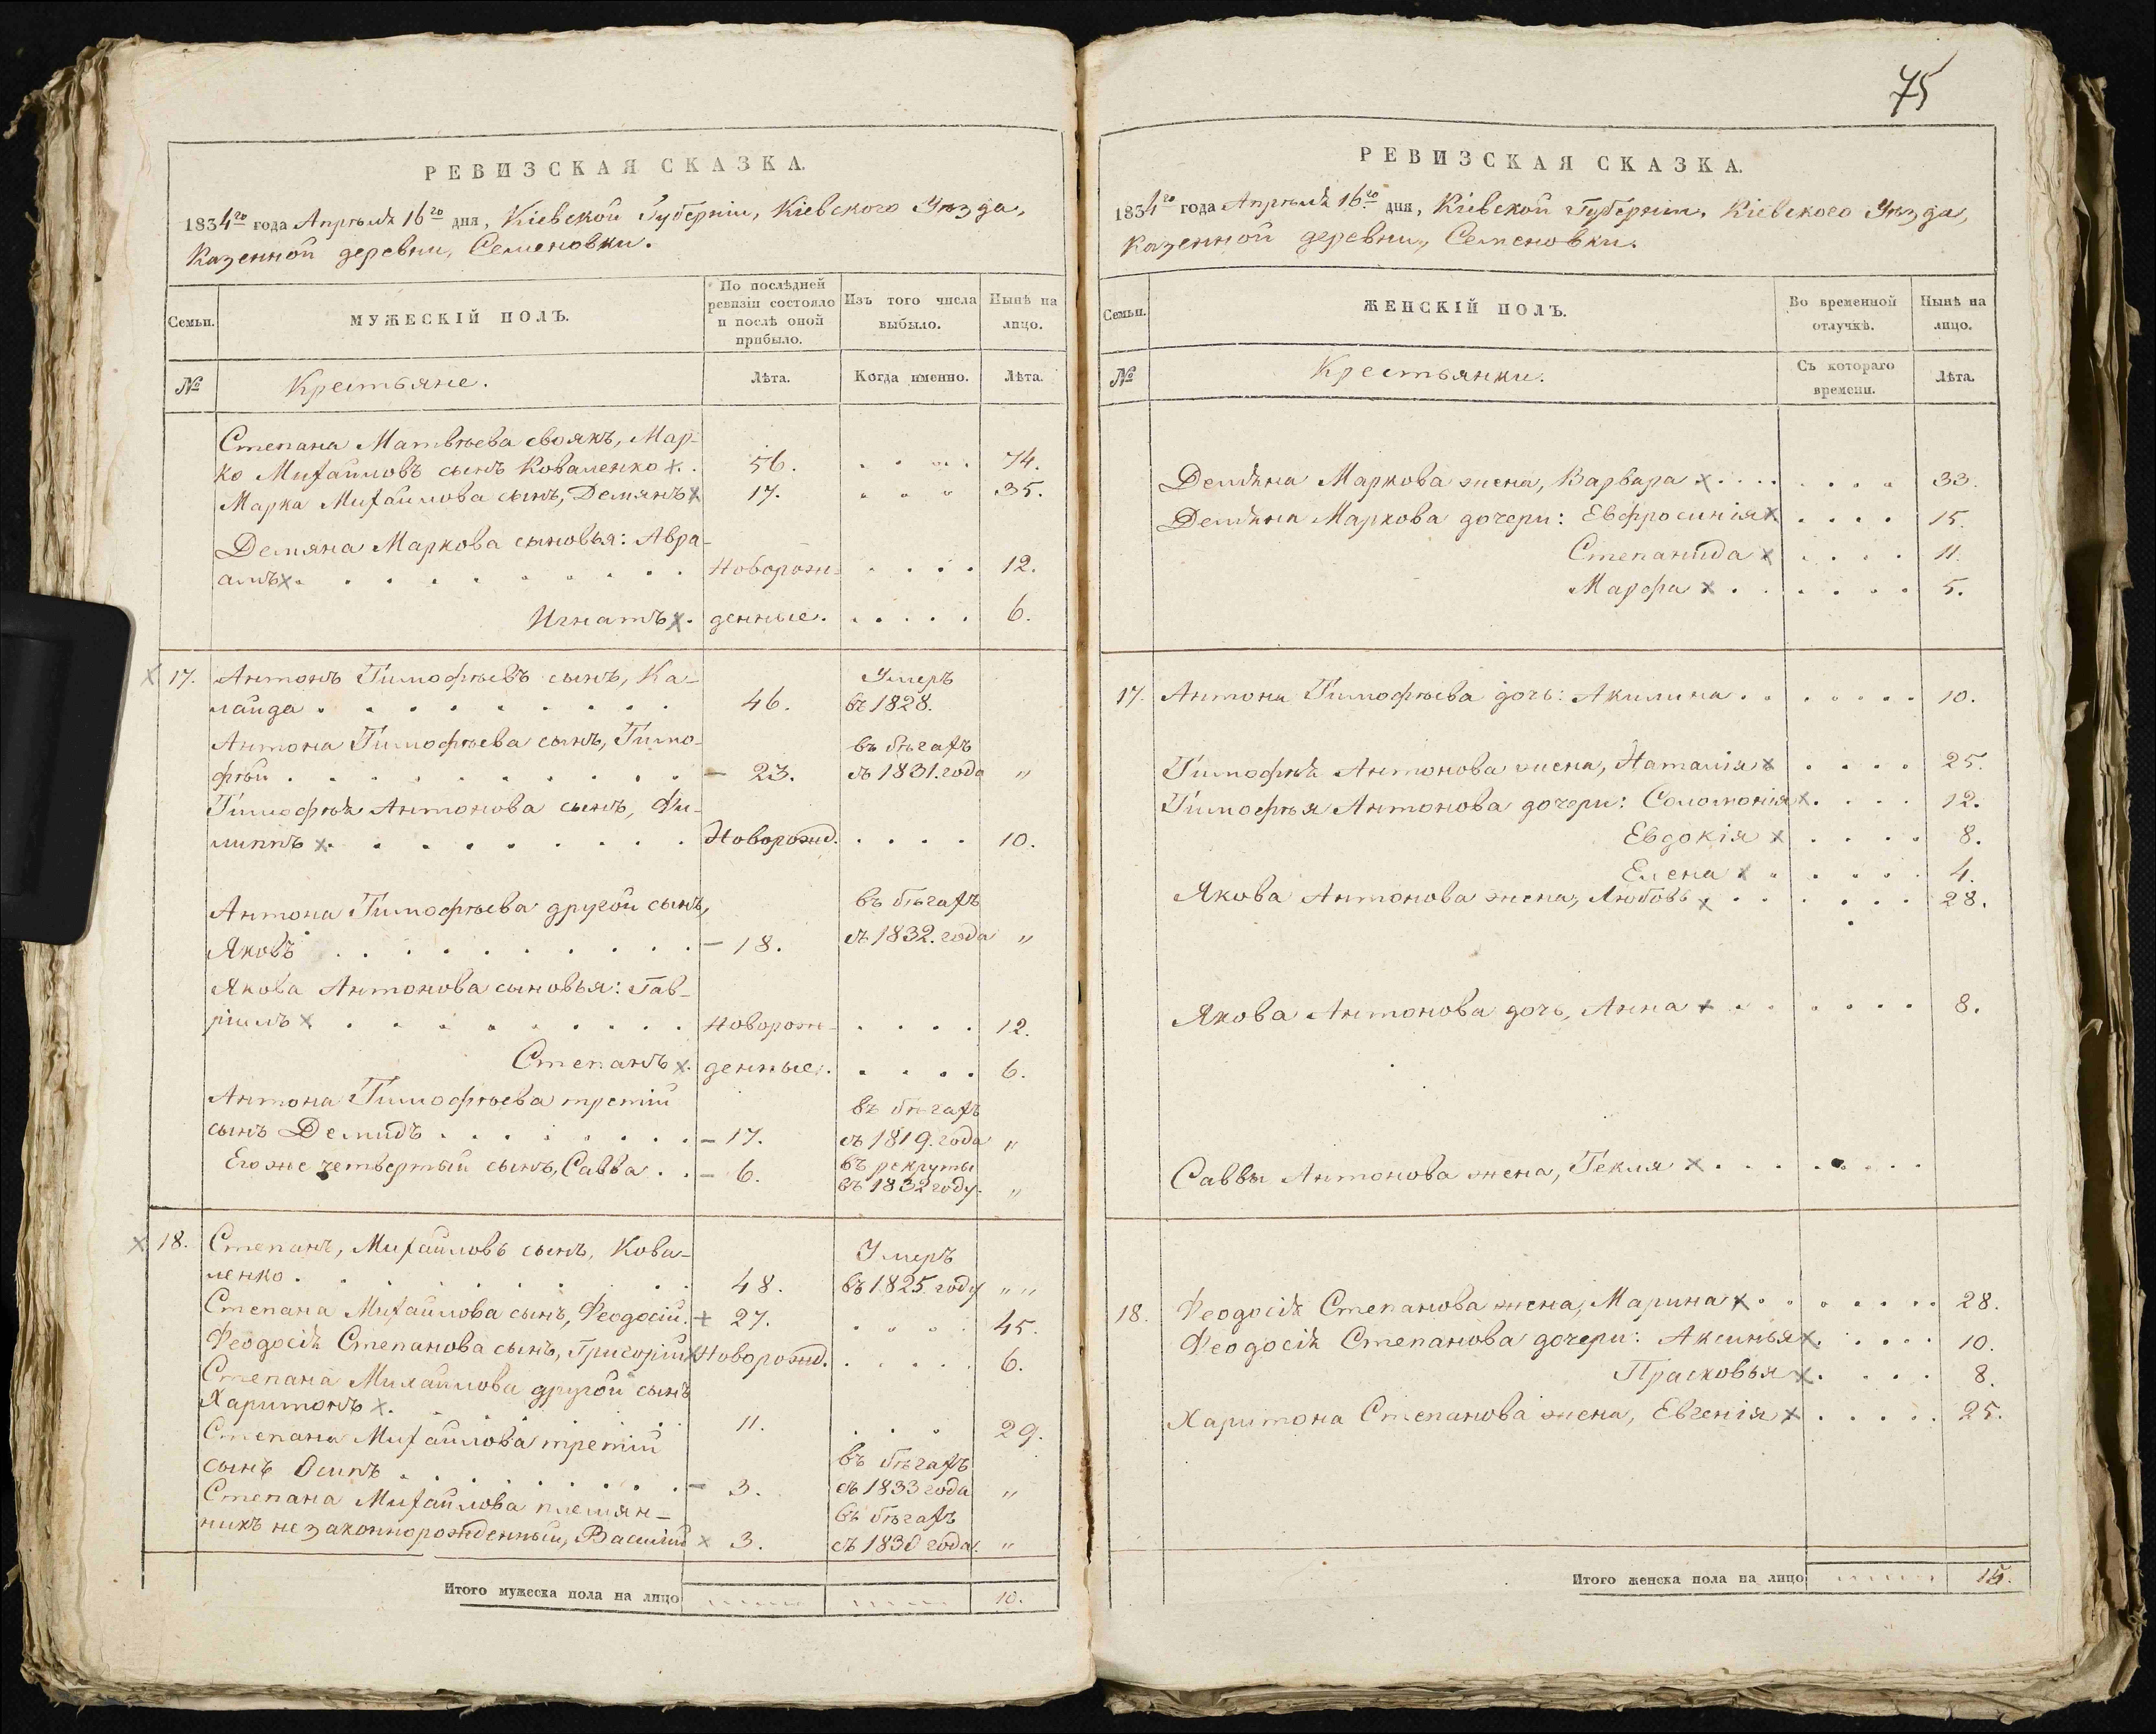 РЕВИЗСКАЯ СКАЗКА.
1834го года Апрѣля 16го дня, Кіевской Губерніи, Кіевского Уѣзда,
Казенной деревни, Семеновки.
Семьи.
МУЖЕСКІЙ ПОЛЪ.
По послѣдней
ревизіи состояло
и послѣ оной
прибыло.
Изъ того числа
выбыло.
Нынѣ на
лицо.
№
Крестьяне.
Лѣта.
Когда именно.
Лѣта.
Степана Матвѣева своякъ, Мар-
ко Михайловъ сынъ Коваленко х. 56. 74.
Марка Михайлова сынъ, Демянъ х 17. 35.
Демяна Маркова сыновья: Авра-
амъ х. Новорож- 12.
Игнатъ х. денные. 6.
х 17. Антонъ Тимофѣевъ сынъ, Ка- Умеръ
лайда 46. въ 1828.
Антона Тимофѣева сынъ, Тимо- въ бѣгахъ
фѣй - 23. съ 1831. года "
Тимофѣя Антонова сынъ, Фи-
липпъ х. Новорожд. 10.
Антона Тимофѣева другой сынъ, въ бѣгахъ
Яковъ - 18. съ 1832. года "
Якова Антонова сыновья: Гав-
ріилъ х Новорож- 12.
Степанъ х. денные. 6.
Антона Тимофѣева третій въ бѣгахъ
сынъ Демидъ - 17. съ 1819. года "
Его же четвертый сынъ, Савва - 6. въ рекруты
въ 1832 году. "
х 18. Степанъ, Михайловъ сынъ, Кова- Умеръ
ленко 48. въ 1825. году " "
Степана Михайлова сынъ, Феодосій. + 27. 45.
Феодосія Степанова сынъ, Григорій х Новорожд. 6.
Степана Михайлова другой сынъ
Харитонъ х. 11. 29.
Степана Михайлова третій въ бѣгахъ
сынъ Осипъ - 3. съ 1833 года "
Степана Михайлова племян- въ бѣгахъ
никъ незаконнорожденный, Василій х 3. съ 1830 года. "
Итого мужеска пола на лицо 10.
75
РЕВИЗСКАЯ СКАЗКА.
1834го года Апрѣля 16го дня, Кіевской Губерніи, Кіевского Уѣзда,
Казенной деревни, Семеновки.
Семьи.
ЖЕНСКІЙ ПОЛЪ.
Во временной
отлучкѣ.
Нынѣ на
лицо.
№
Крестьянки.
Съ котораго
времени.
Лѣта.
Демяна Маркова жена, Варвара х 33.
Демяна Маркова дочери: Евфросинія х 15.
Степанида х 11.
Марфа х 5.
17. Антона Тимофѣева дочь: Акилина 10.
Тимофѣя Антонова жена, Наталія х 25.
Тимофѣя Антонова дочери: Соломонія х. 12.
Евдокія х 8.
Елена х 4.
Якова Антонова жена, Любовь х 28.
Якова Антонова дочь, Анна х 8.
Саввы Антонова жена, Текля х
18. Феодосія Степанова жена, Марина х 28.
Феодосія Степанова дочери: Аксинья х. 10.
Прасковья х. 8.
Харитона Степанова жена, Евгенія х 25.
Итого женска пола на лицо